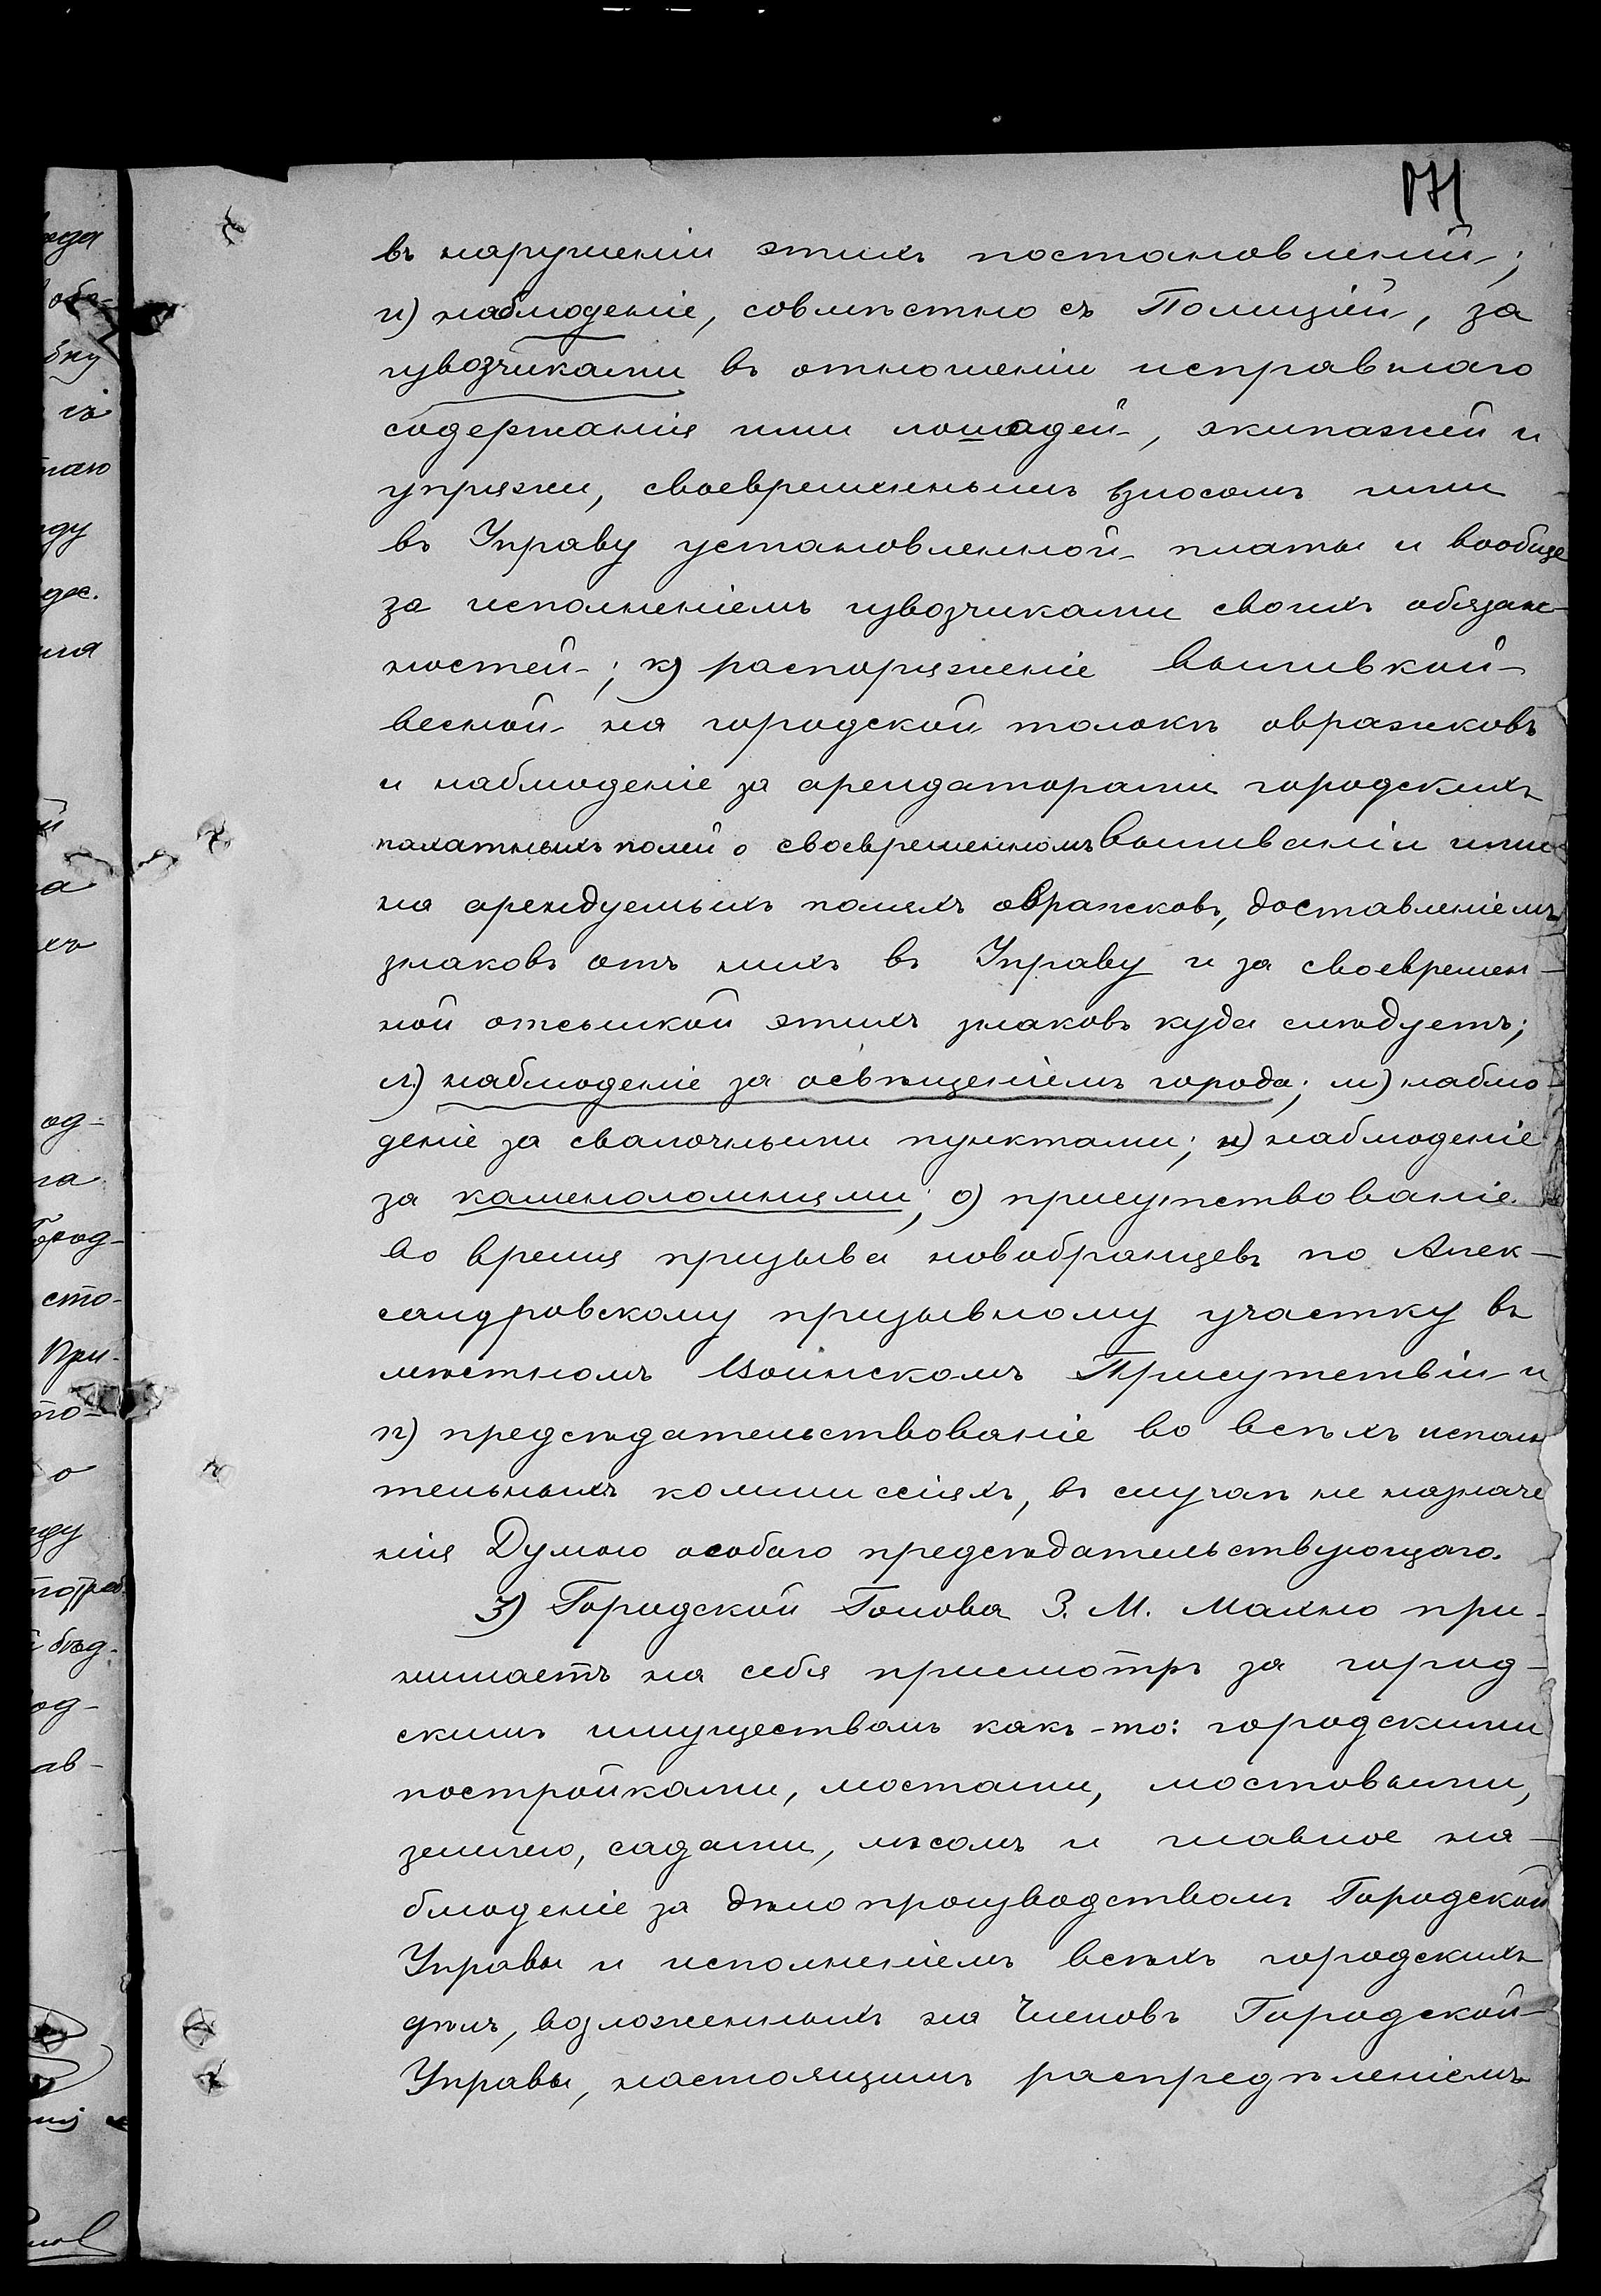 171
въ нарушеніи этихъ постановленій;
и) наблюденіе, совмѣстно съ Полиціей, за
извозчиками въ отношеніи исправнаго
содержанія ими лошадей, экипажей и
упряжи, своевременнымъ взносомъ ими
въ Управу установленной платы и вообще
за исполненіемъ извозчиками своихъ обязан-
ностей; к) распоряженіе выливкой
весной на городской толокѣ овражковъ
и наблюденіе за арендаторами городскихъ
пахатныхъ полей о своевременномъ выливаніи ими
на арендуемыхъ поляхъ овражковъ, доставленіемъ
знаковъ отъ нихъ въ Управу и за своевремен-
ной отсылкой этихъ знаковъ куда слѣдуетъ;
л) наблюденіе за освѣщеніемъ города; м) наблю-
деніе за свалочными пунктами; н) наблюденіе
за каменоломнями; о) присутствованіе
во время призыва новобранцевъ по Алек-
сандровскому призывному участку въ
мѣстномъ Воинскомъ Присутствіи и
п) предсѣдательствованіе во всѣхъ исполни
тельныхъ коммиссіяхъ, въ случаѣ не назначе
нія Думою особаго предсѣдательствующаго.
3) Городской Голова З. М. Махно при-
нимаетъ на себя присмотръ за город-
скимъ имуществомъ какъ-то: городскими
постройками, мостами, мостовыми,
землею, садами, лѣсомъ и главное на-
блюденіе за дѣлопроизводствомъ Городской
Управы и исполненіемъ всѣхъ городскихъ
дѣлъ, возложенныхъ на Членовъ Городской
Управы, настоящимъ распредѣленіемъ